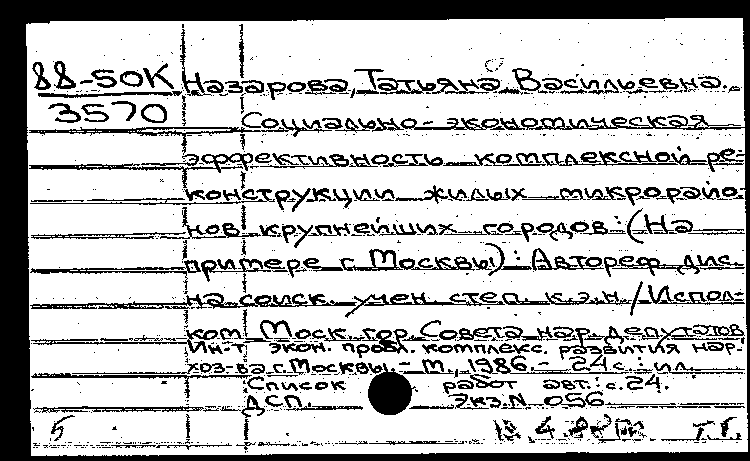 88-50К
3570
Назарова, Татьяна Васильевна.
Социально-экономическая
эффективность комплексной ре-
конструкции жилых микрорайо-
нов крупнейших городов: (На
примере г. Москвы): Автореф. дис.
на соиск. учен. степ. к.э.н / Испол-
ком Моск. гор. Совета нар. депутатов
Ин-т экон. пробл. комплекс. развития нар.
хоз-ва г. Москвы. - М., 1986. - 24 с.: ил.
Список работ авт.: с. 24.
ДСП. Экз. N 056
5 Т.Г.